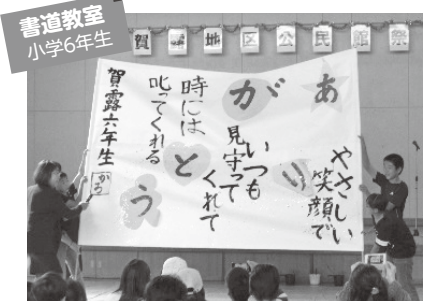 書道教室
小学6年生
賀露地区公民館祭
ありがとう
やさしい
笑顔で
いつも
見守って
くれて
時には
叱ってくれる
賀露六年生
かろ